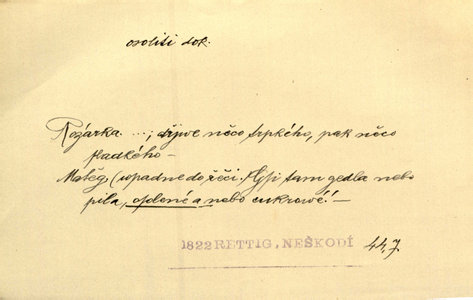 osoliti dok.
Rozárka. ...; dřjve něco trpkého, pak něco
sladkého —
Matěg (wpadne do řeči). Gjsi tam gedla nebo
pila, osolené a nebo cukrowé! —
1822 RETTIG, NEŠKODÍ 44,7.